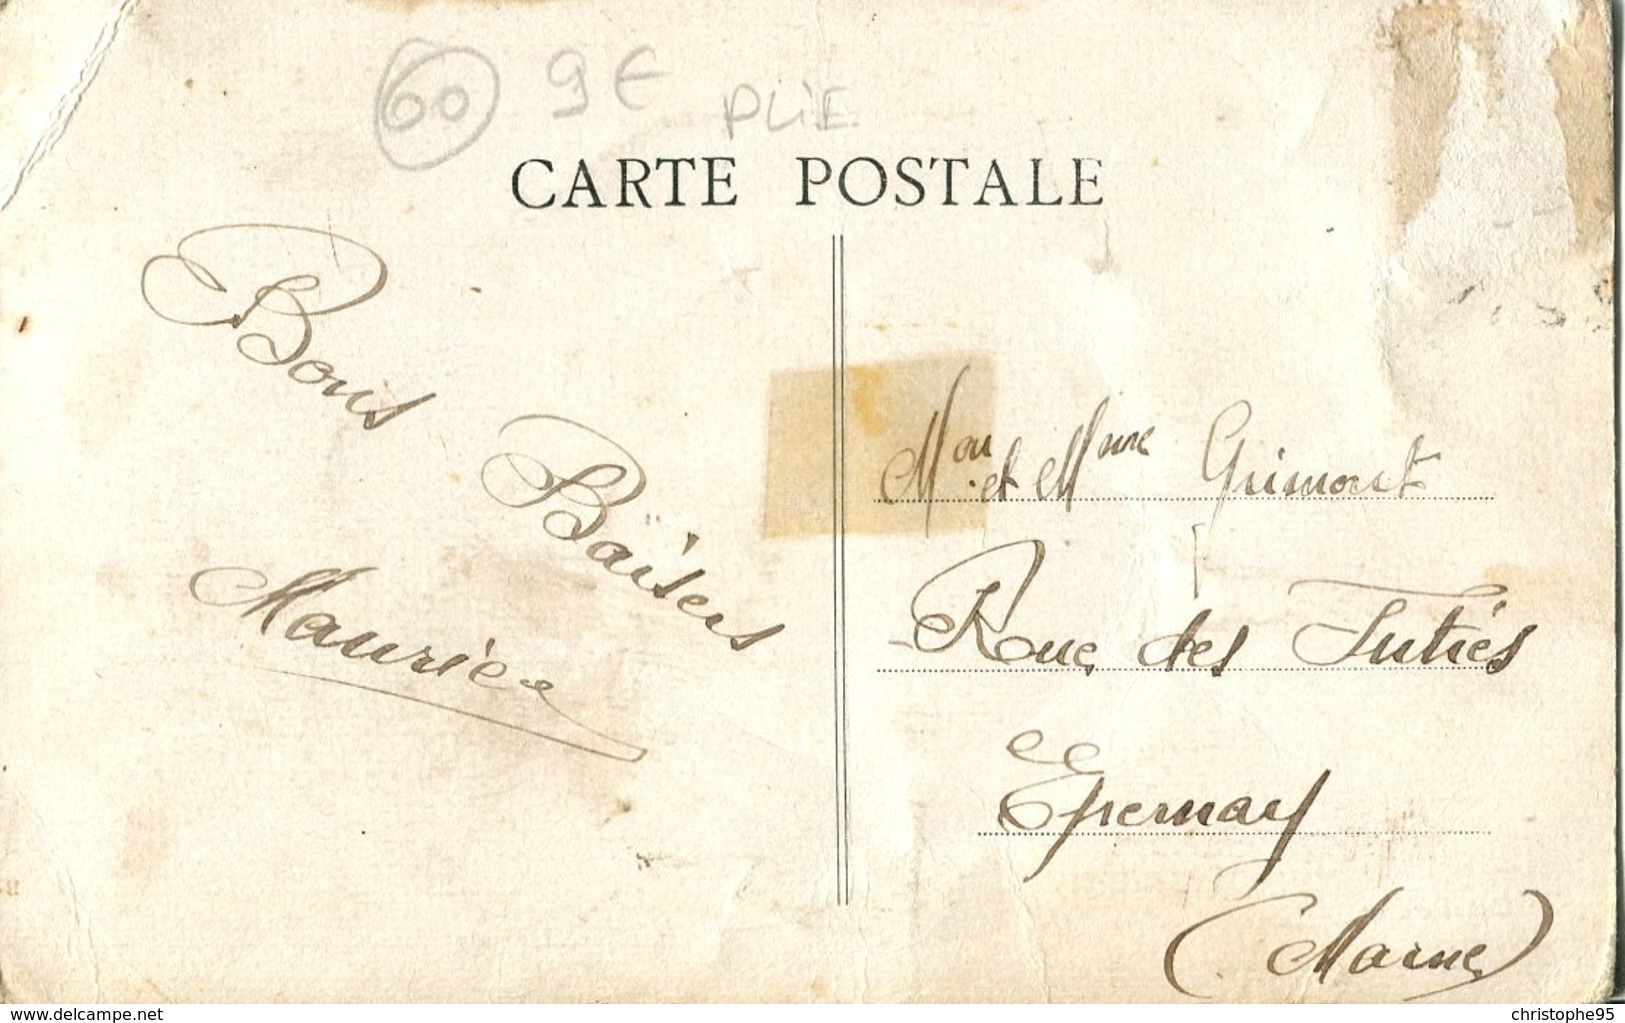 60 9€ PLIE
CARTE POSTALE
Bons Baisers
Maurice
Mon et Mme Grimont
Rue des
Epernay
(Marne)
www.delcampe.net
christophe95